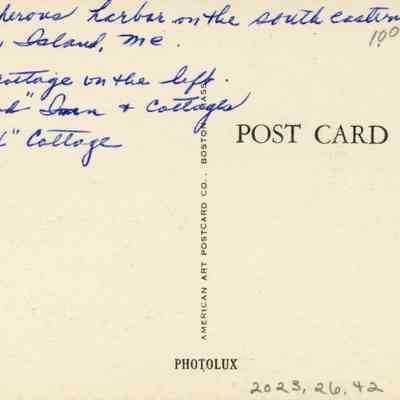 herous harbor on the south eastern
Island, Me.
100
cottage on the left.
d" Inn & Cottages
" Cottage
POST CARD
AMERICAN ART POSTCARD CO., BOSTON, MASS.
PHOTOLUX
2023.26.42